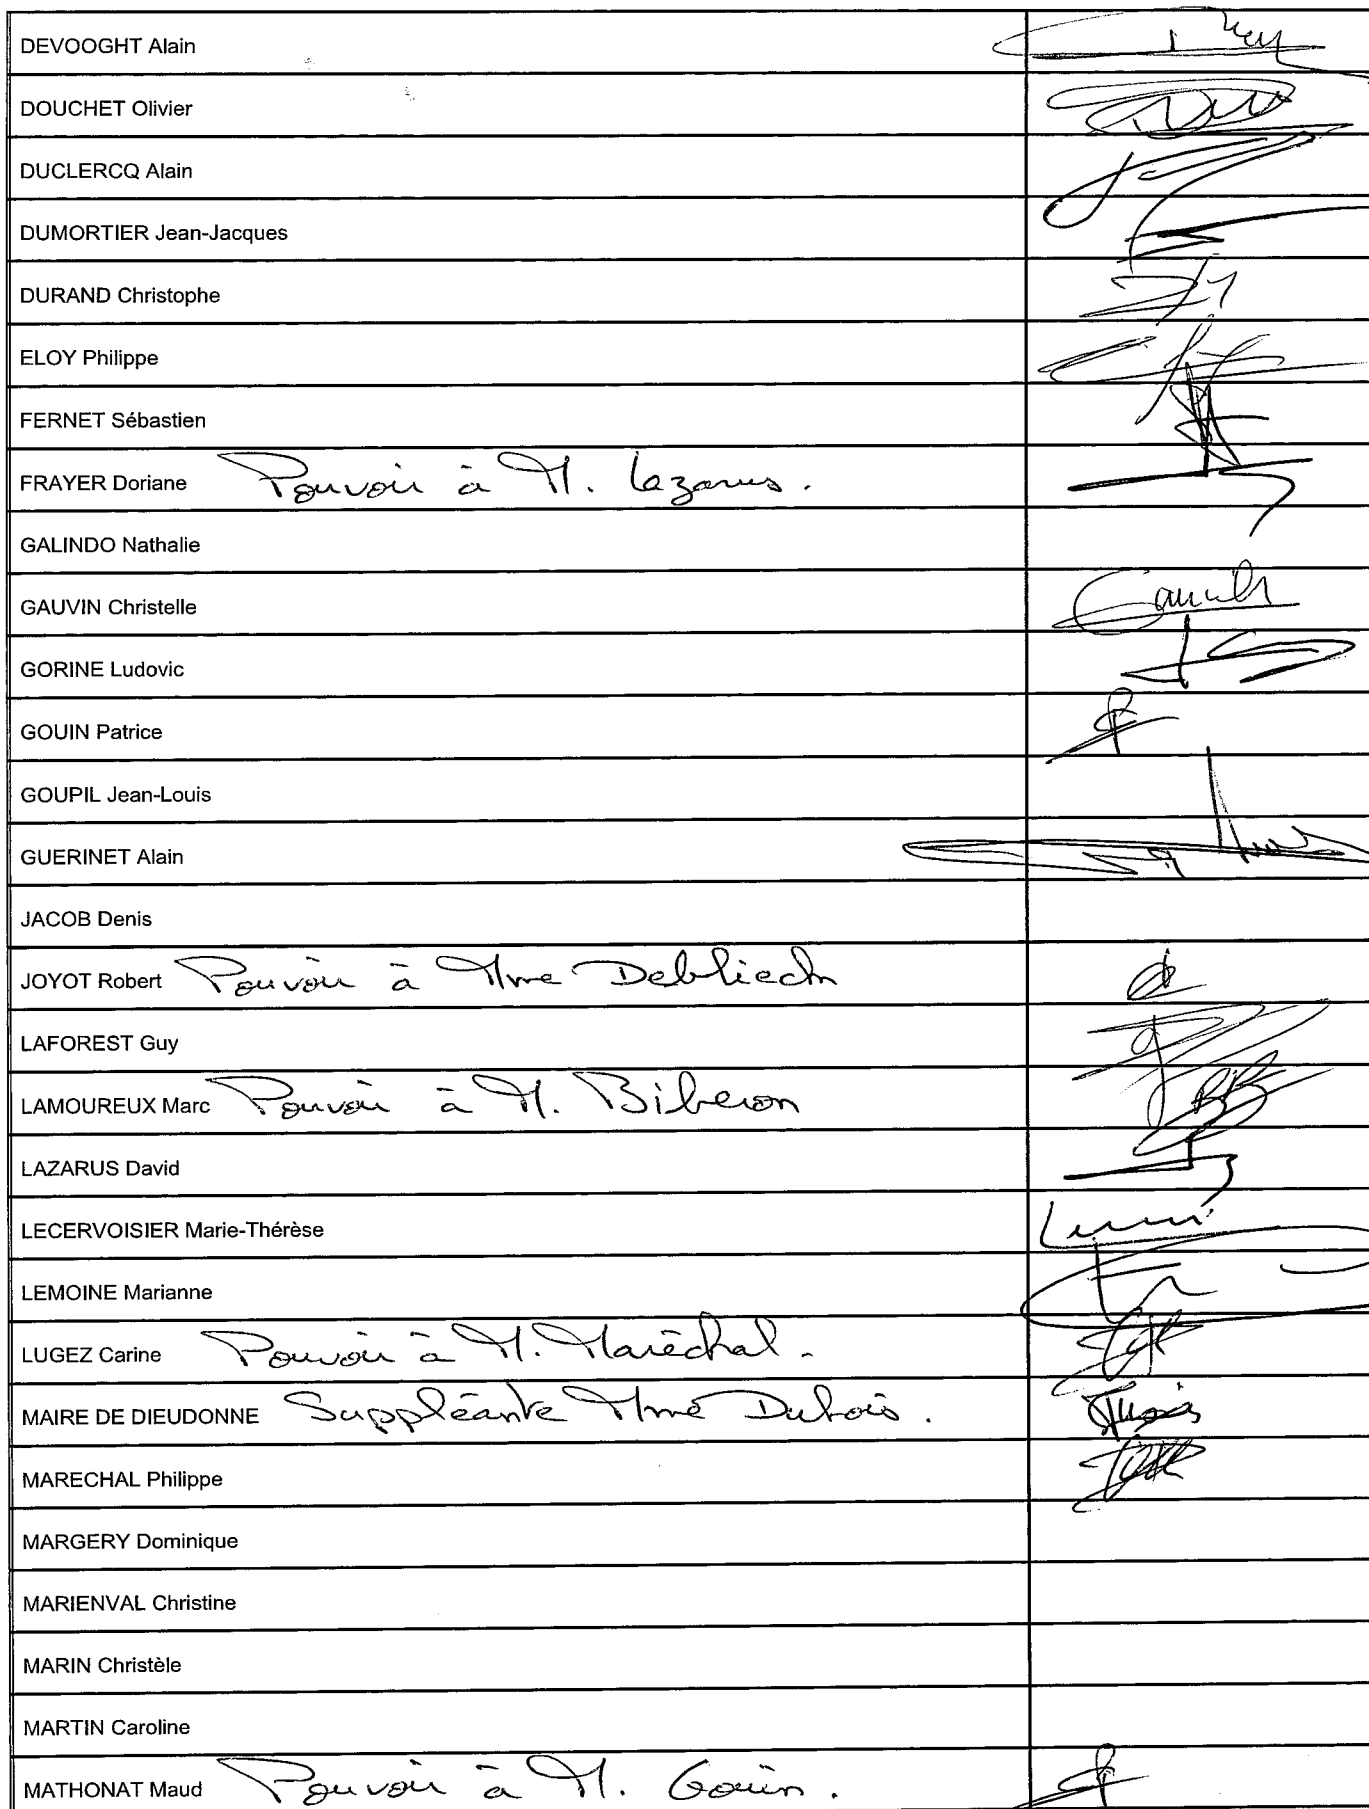 DEVOOGHT Alain
DOUCHET Olivier
DUCLERCQ Alain
DUMORTIER Jean-Jacques
DURAND Christophe
ELOY Philippe
FERNET Sébastien
FRAYER Doriane Pouvoir à M. Lazarus.
GALINDO Nathalie
GAUVIN Christelle
GORINE Ludovic
GOUIN Patrice
GOUPIL Jean-Louis
GUERINET Alain
JACOB Denis
JOYOT Robert Pouvoir à Mme Debliech
LAFOREST Guy
LAMOUREUX Marc Pouvoir à M. Biberon
LAZARUS David
LECERVOISIER Marie-Thérèse
LEMOINE Marianne
LUGEZ Carine Pouvoir à M. Maréchal.
MAIRE DE DIEUDONNE Suppléante Mme Dubois.
MARECHAL Philippe
MARGERY Dominique
MARIENVAL Christine
MARIN Christèle
MARTIN Caroline
MATHONAT Maud Pouvoir à M. Gouin.